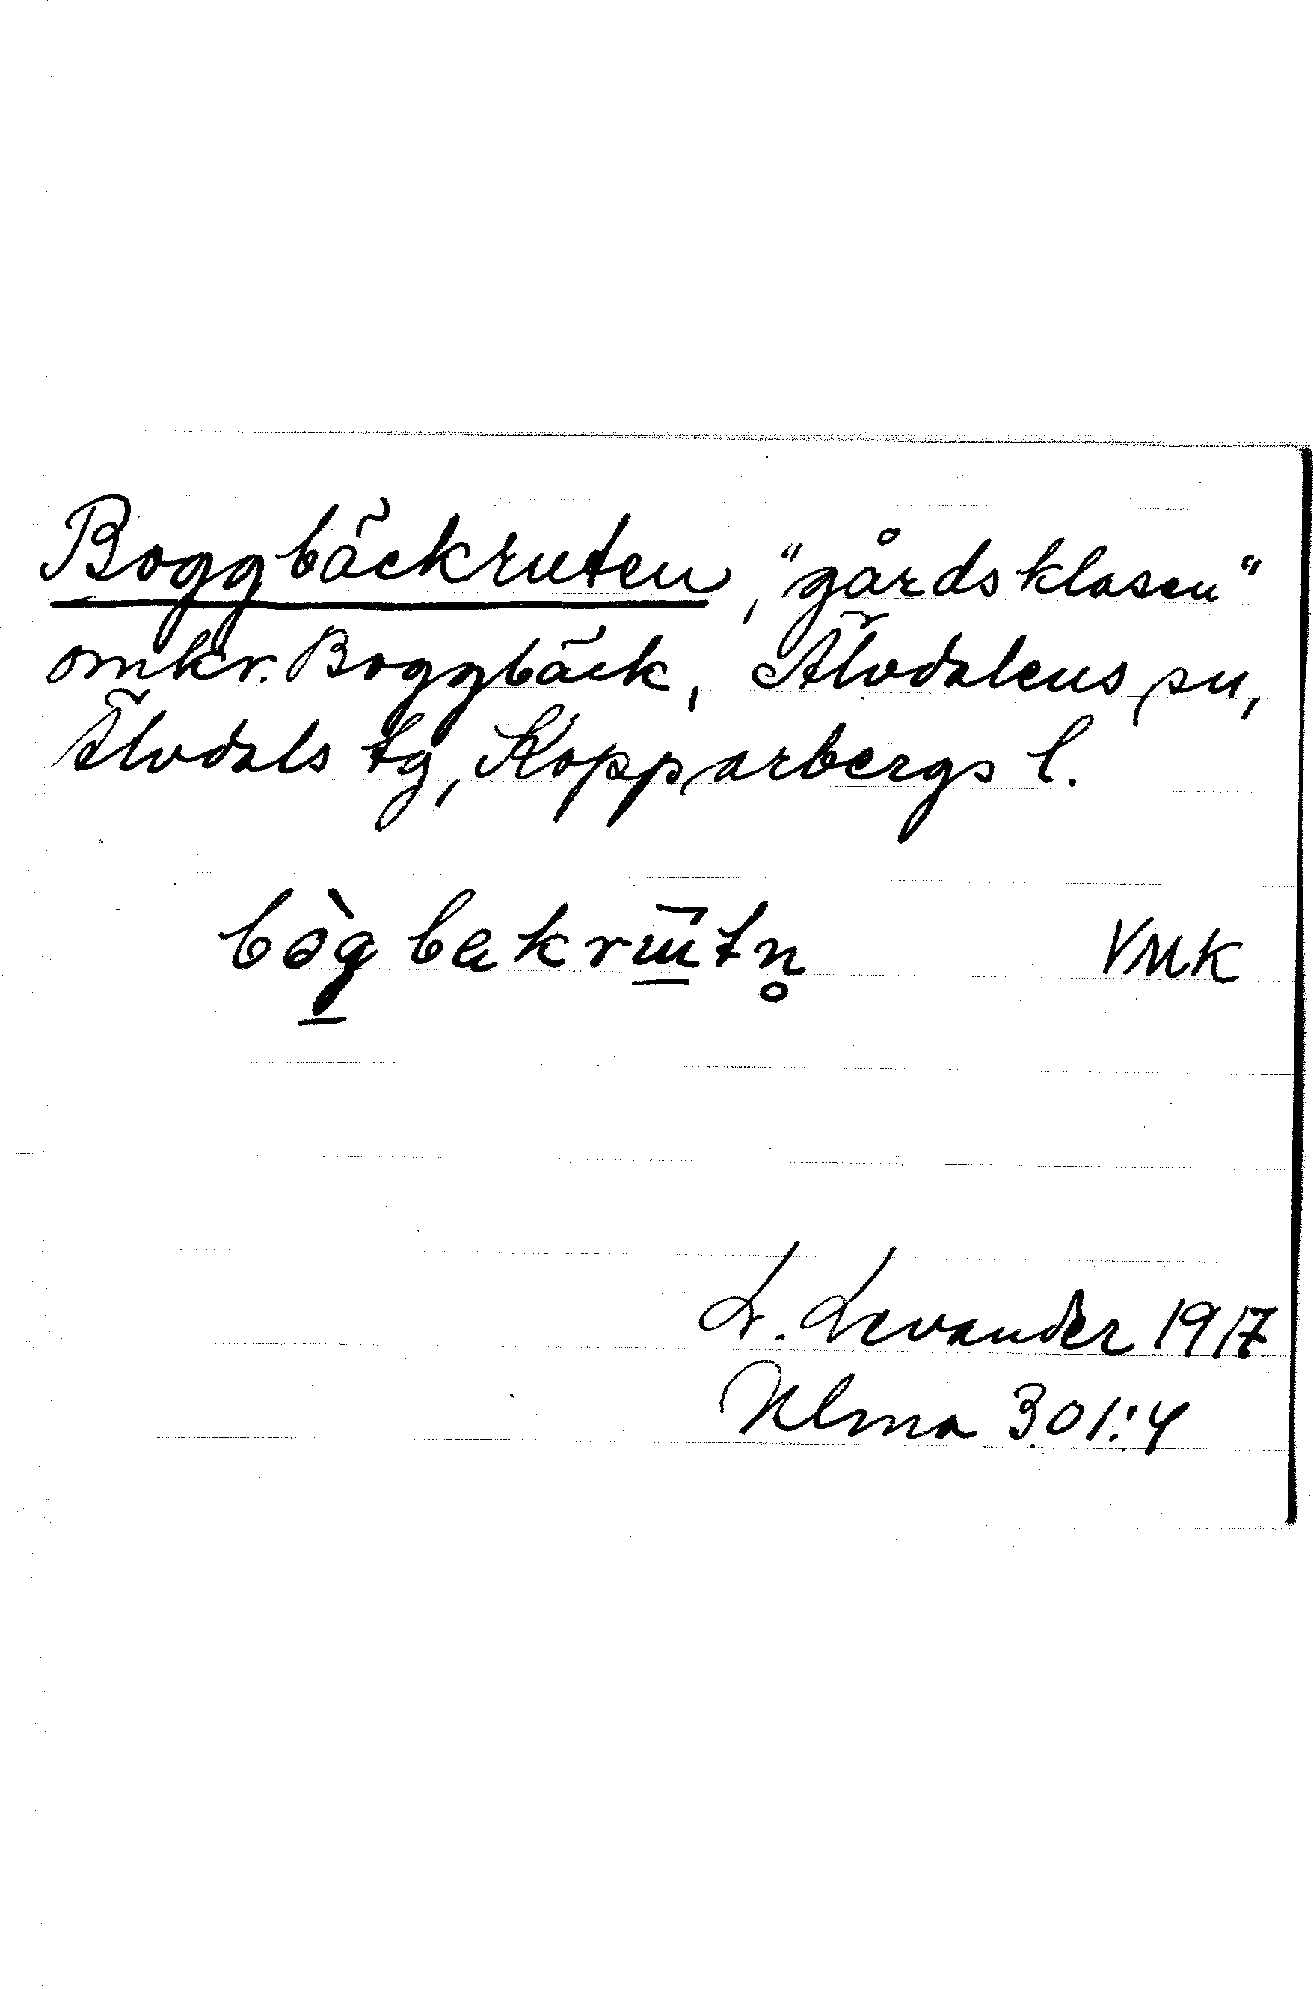 Boggbäckruten, "gårdsklasen"
omkr. Boggbäck, Älvdalens sn,
Älvdals tg, Kopparbergs l.
VMK
L. Levander 1917
Ulma 301:4